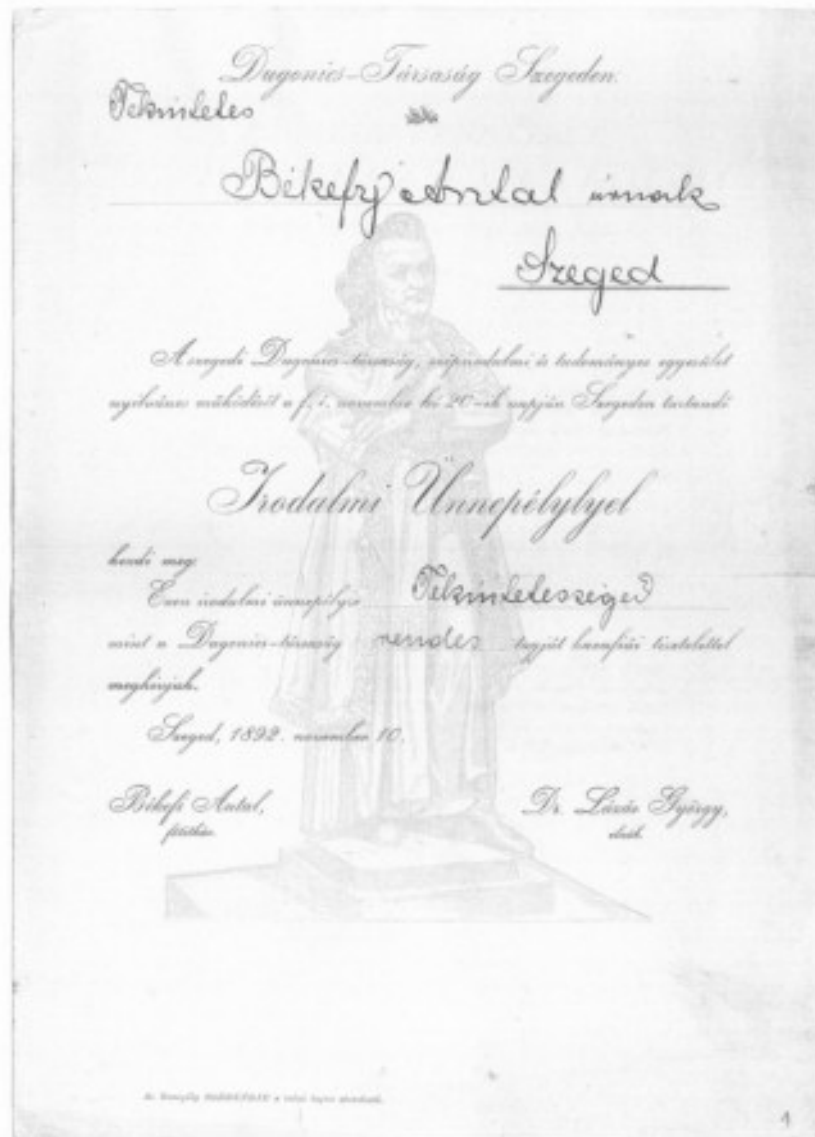 Dugonics-Társaság Szegeden.
Tekintetes
Békefy Antal úrnak
Szeged
A szegedi Dugonics-társaság, szépirodalmi és tudományos egyesület
nyilvános működését a f. é. november hó 20-ik napján Szegeden tartandó
Irodalmi Ünnepélylyel
kezdi meg.
Ezen irodalmi ünnepélyre Tekintetességed
mint a Dugonics-társaság rendes tagját hazafiúi tisztelettel
meghívjuk.
Szeged, 1892. november 10.
Békefi Antal, Dr. Lázár György,
főtitkár. elnök.
Az ünnepély a túlsó lapon olvasható.
1